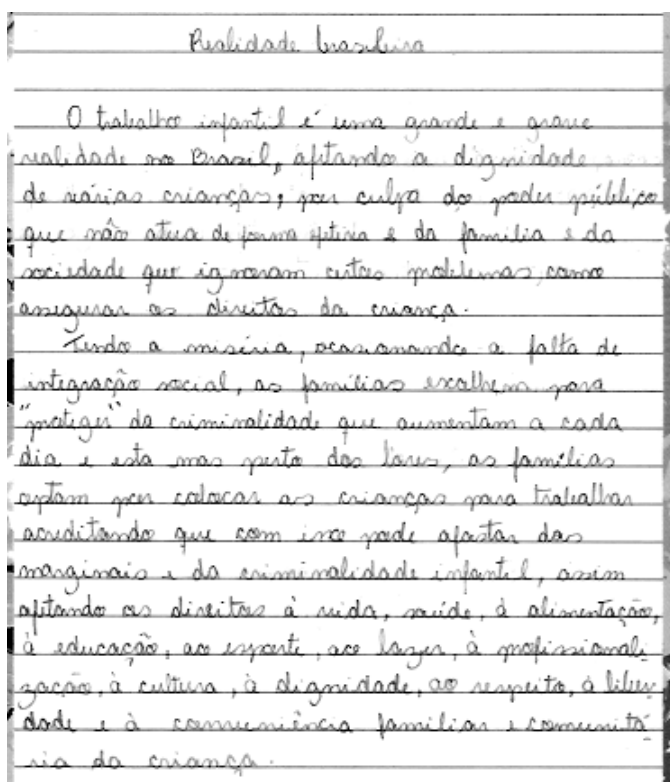 Realidade brasileira
O trabalho infantil é uma grande e grave
realidade no Brasil, afetando a dignidade
de várias crianças, por culpa do poder público
que não atua de forma efetiva e da família e da
sociedade que ignoram certos problemas, como
assegurar os direitos da criança.
Tendo a miséria, ocasionando a falta de
integração social, as famílias escolhem para
"proteger" da criminalidade que aumentam a cada
dia e esta mas perto dos lares, as famílias
optam por colocar as crianças para trabalhar
acreditando que com isso pode afastar das
marginais e da criminalidade infantil, assim
afetando os direitos à vida, saúde, à alimentação,
à educação, ao esporte, ao lazer, à profissionali-
zação, à cultura, à dignidade, ao respeito, à liber-
dade e à convivência familiar e comunitá-
ria da criança.